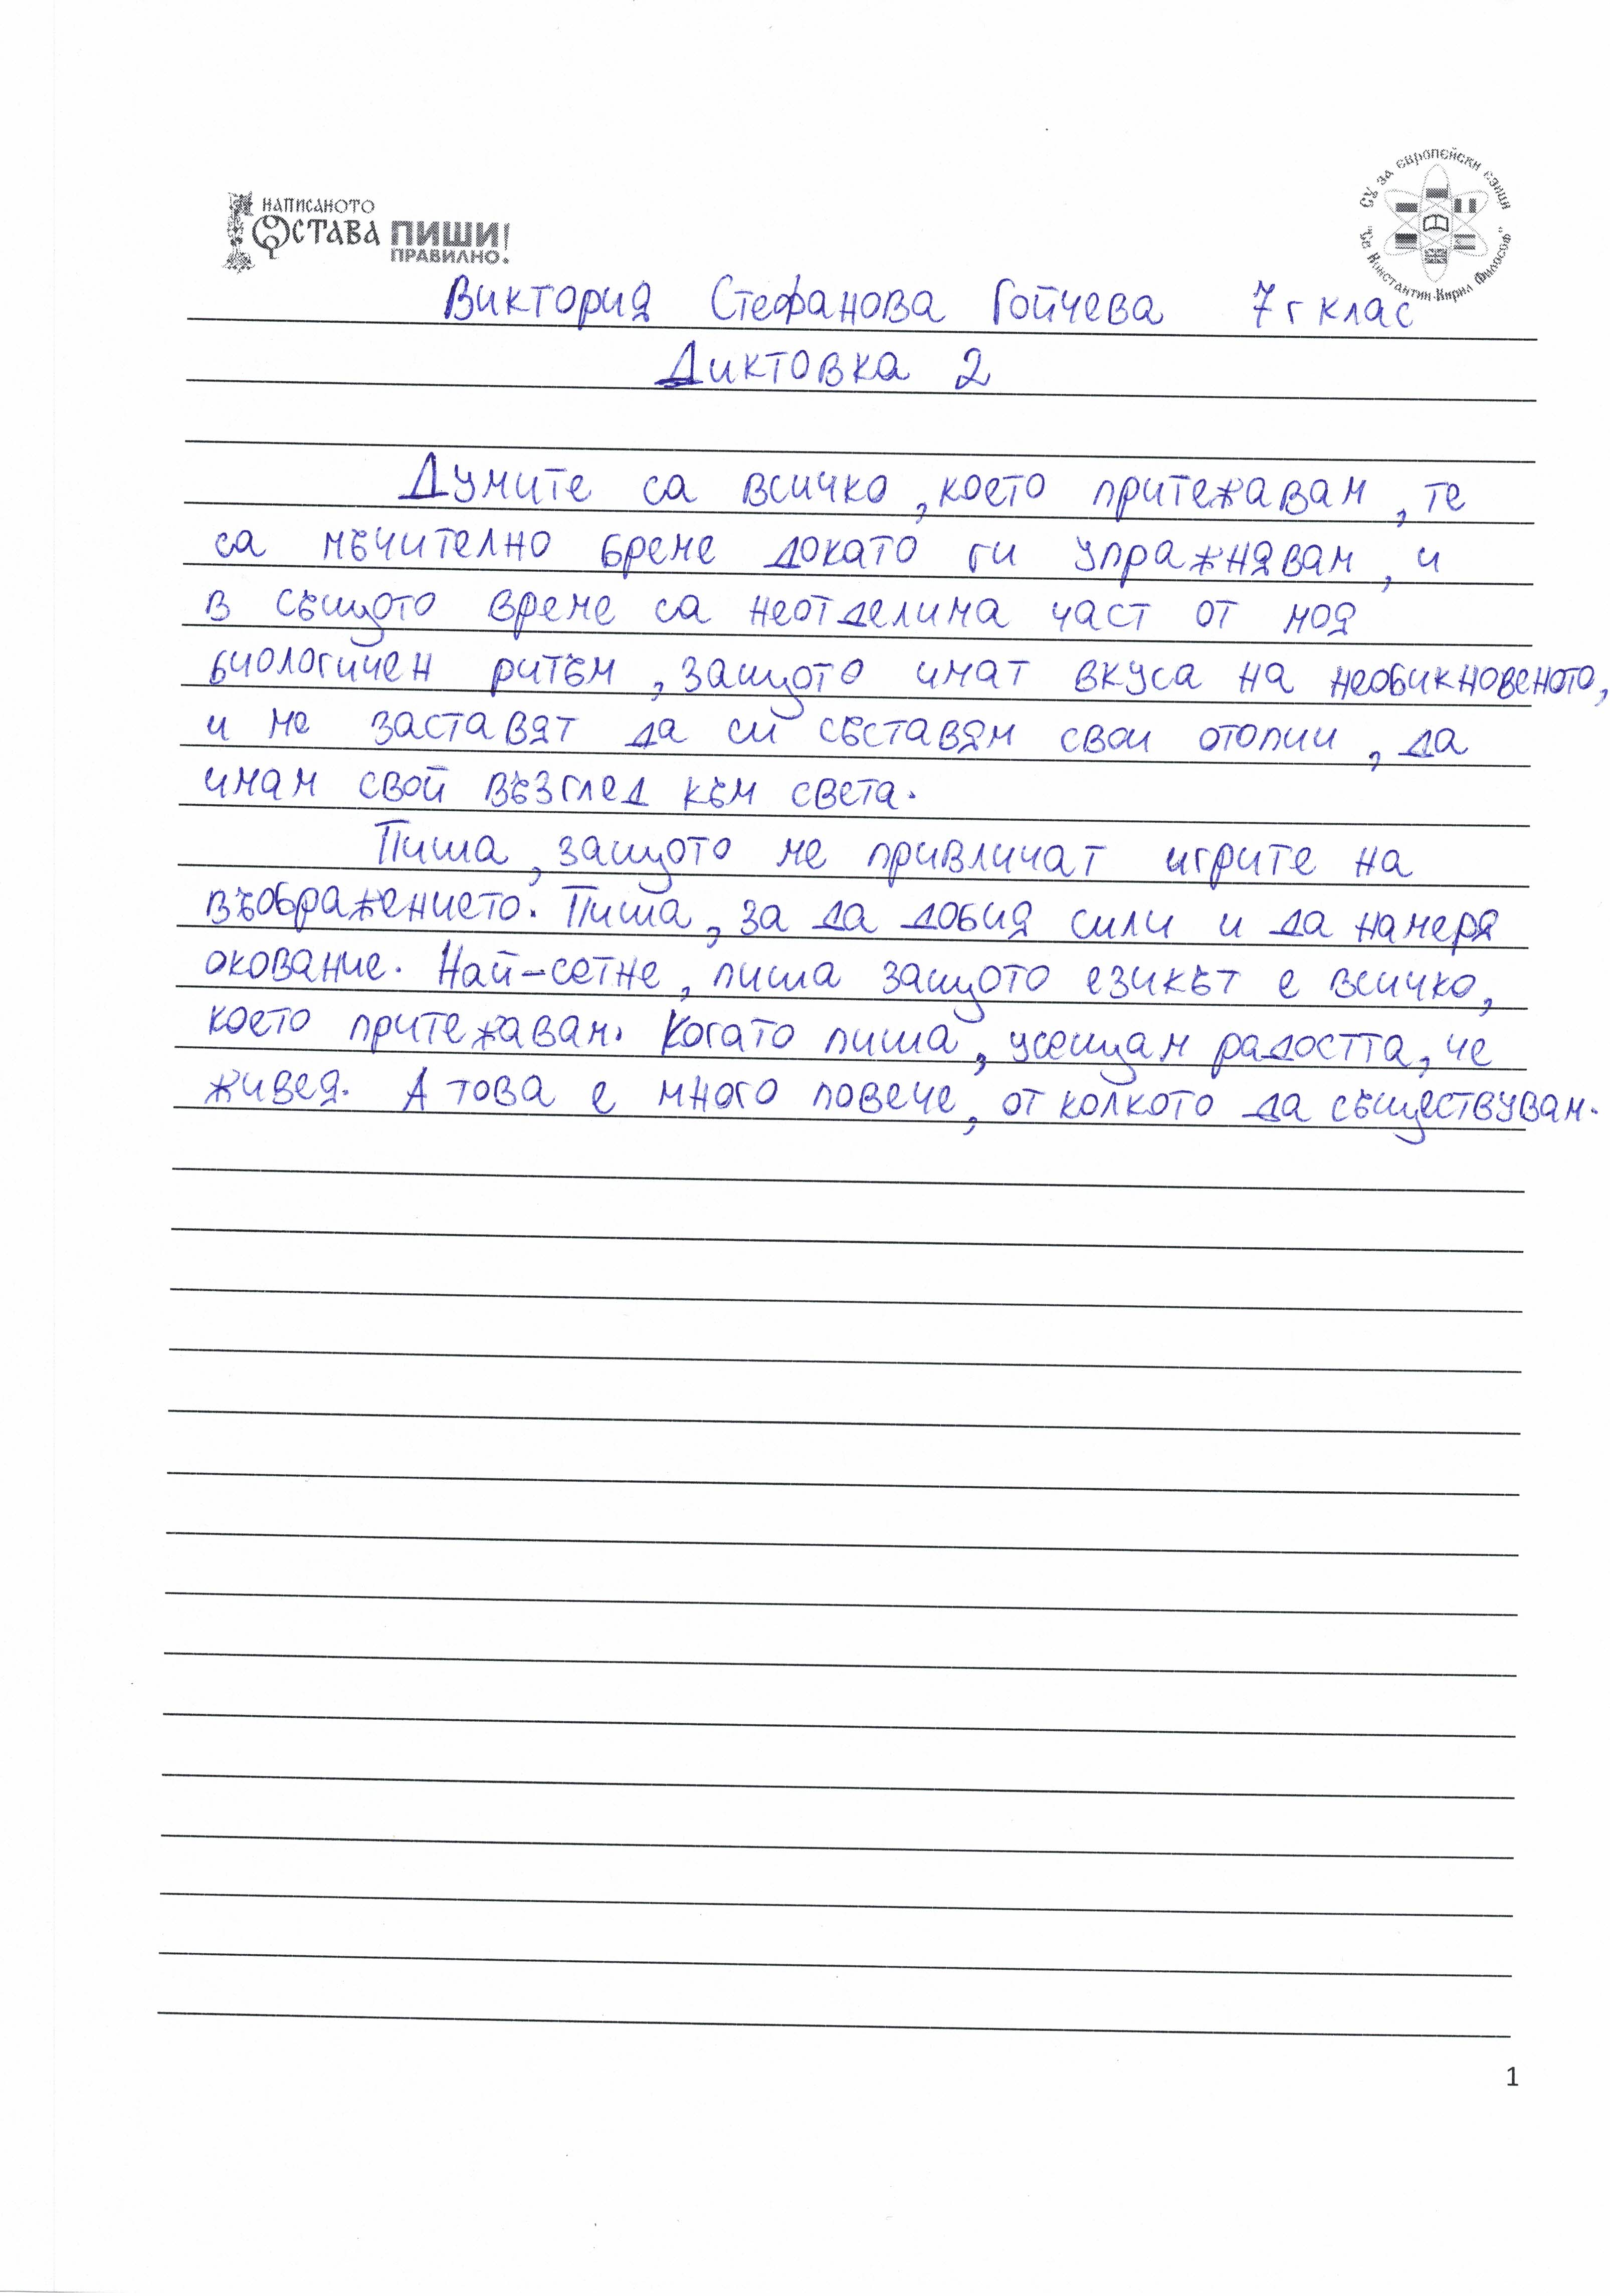 НАПИСАНОТО
ОСТАВА ПИШИ!
ПРАВИЛНО.
СУ за европейски езици
"Св. Константин-Кирил Философ"
Виктория Стефанова Гойчева 7г клас
Диктовка 2
Думите са всичко, което притежавам, те
са мъчително бреме докато ги упражнявам, и
в същото време са неотделима част от моя
биологичен ритъм, защото имат вкуса на необикновеното,
и ме заставят да си съставям свои отопии, да
имам свой възглед към света.
Пиша, защото ме привличат игрите на
въображението. Пиша, за да добия сили и да намеря
окование. Най-сетне, пиша защото езикът е всичко,
което притежавам. Когато пиша, усещам радостта, че
живея. А това е много повече, от колкото да съществувам.
1